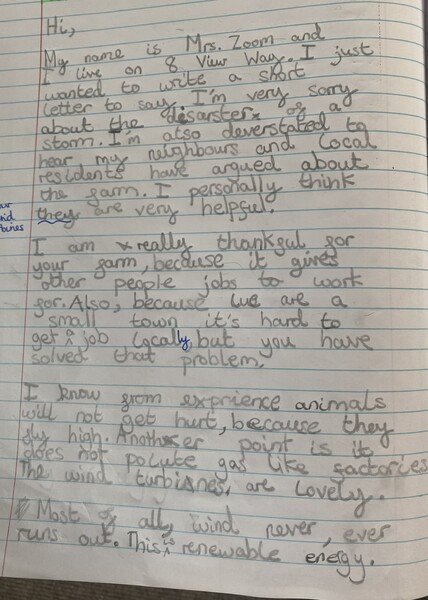 Hi,
My name is Mrs. Zoom and
I live on 8 View Way. I just
wanted to write a short
letter to say, I'm very sorry
about the desarster of a
storm. I'm also deverstated to
hear my neighbours and local
residents have argued about
the farm. I personally think
they are very helpful.
I am really thankful for
your farm, because it gives
other people jobs to work
for. Also, because we are a
small town it's hard to
get a job locally, but you have
solved that problem.
I know from exprience animals
will not get hurt, because they
fly high. Another point is it
does not polute gas like factories
The wind turbines, are lovely.
Most of all, wind never, ever
runs out. This is renewable energy.